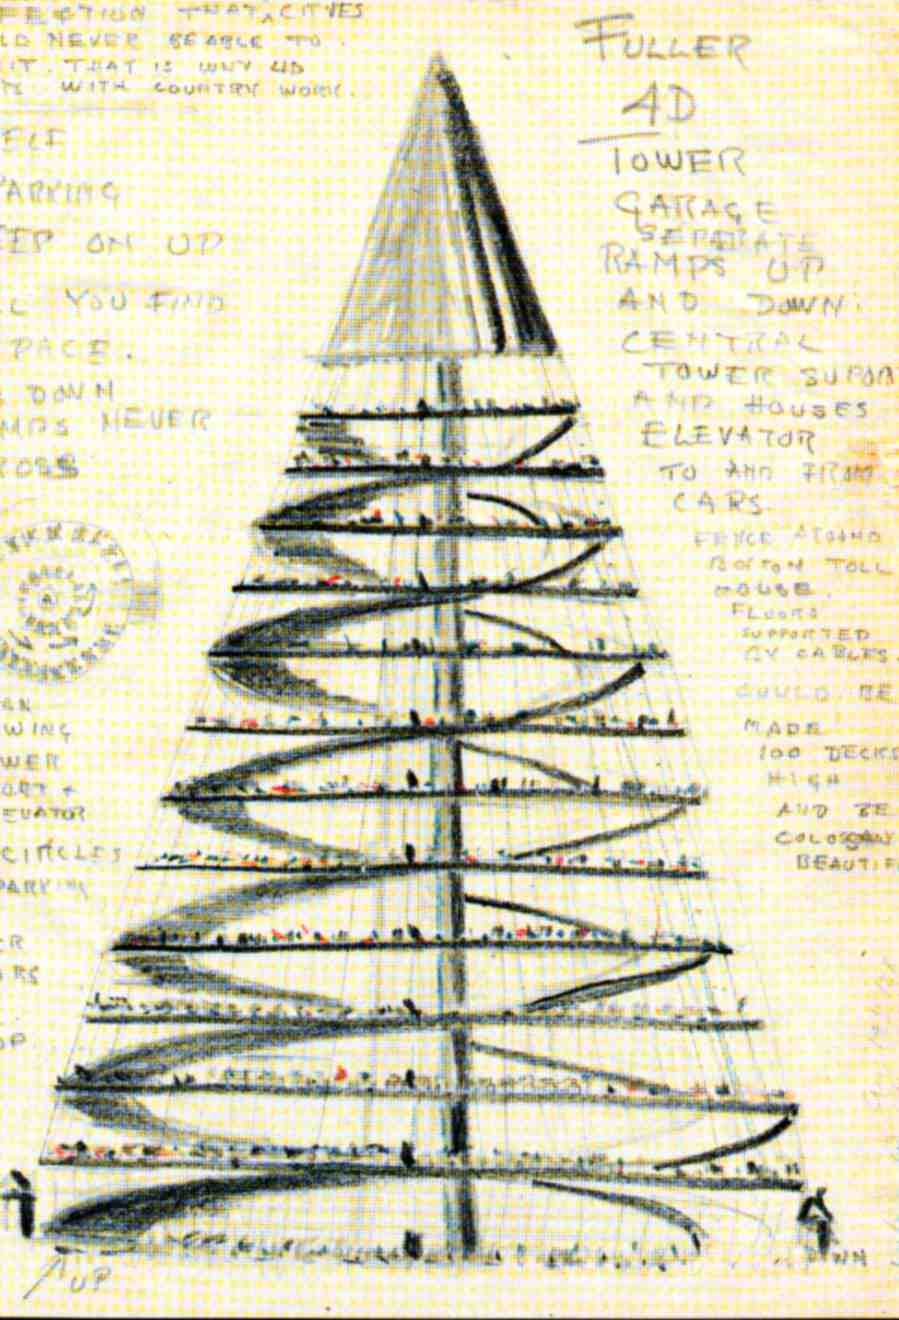 FECTION THAT CITYES
LD NEVER BE ABLE TO
IT. THAT IS WHY 4D
TS WITH COUNTRY WORK.
ELF
PARKING
EEP ON UP
L YOU FIND
PACE.
S DOWN
MPS NEVER
ROSS
AN
WING
WER
ORT +
EVATOR
CIRCLES
PARKING
ER
ORS
OP
UP
FULLER
4D
TOWER
GARAGE
SEPERATE
RAMPS UP
AND DOWN.
CENTRAL
TOWER SUPORT
AND HOUSES
ELEVATOR
TO AND FROM
CARS.
FENCE AROUND
BOTTOM TOLL
HOUSE.
FLOORS
SUPPORTED
BY CABLES.
COULD BE
MADE
100 DECKS
HIGH
AND BE
BEAUTIF
WN